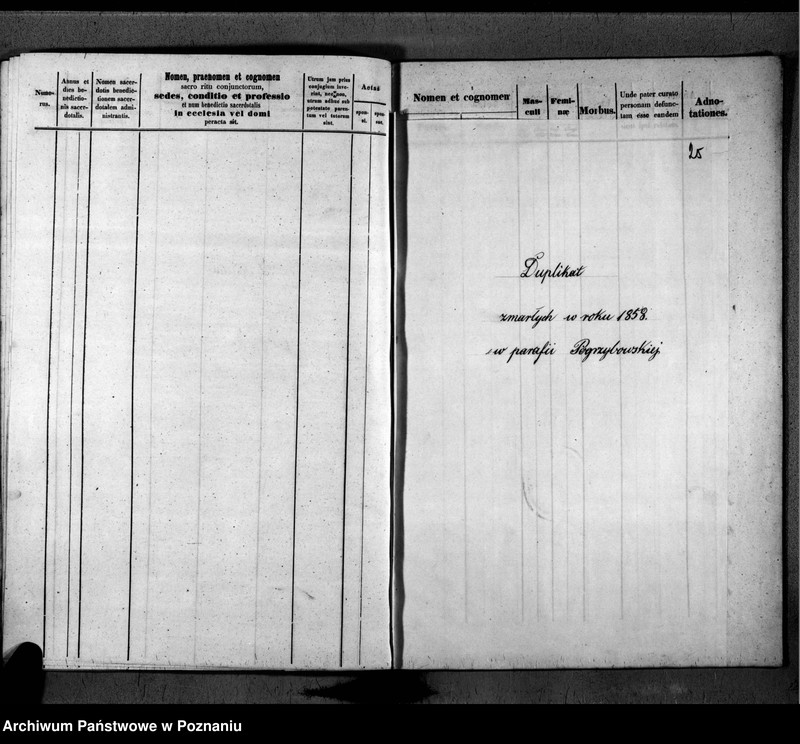 Nume-
rus.
Annus et
dies be-
nedictio-
nis sacer-
dotalis.
Nomen sacer-
dotis benedic-
tionem sacer-
dotalem admi-
nistrantis.
Nomen, praenomen et cognomen
sacro ritu conjunctorum,
sedes, conditio et professio
et num benedictio sacerdotalis
in ecclesia vel domi
peracta sit.
Utrum jam prius
conjugium inve-
rint, necne,
utrum adhuc sub
potestate paren-
tum vel tutorum
sint.
Aetas
spon-
si.
spon-
sae.
Nomen et cognomen
Mas-
culi
Femi-
næ
Morbus.
Unde pater curato
personam defunc-
tam esse eandem
Adno-
tationes.
25
Duplikat
zmarłych w roku 1858.
w parafii Pogrzybowskiej
Archiwum Państwowe w Poznaniu